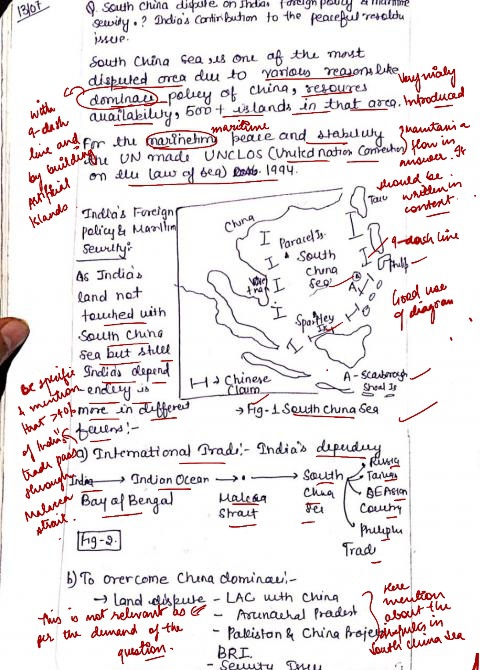 13/07
Q. South China dispute on India's foreign policy & maritime
security.? India's contribution to the peaceful
issue.
South China sea, is one of the most
disputed area due to various reasons like
dominance policy of China, resources
availability, 500+ islands in that area.
Very nicely
Introduced
with
9-dash
line and
by building
Artificial
Islands
maritime
For the peace and stability
the UN made UNCLOS (United nation Convection
on the law of sea) 1994.
maintain a
flow in
answer. It
should be
written in
context.
India's Foreign
Policy & Maritim
Security:-
As India's
land not
touched with
South China
sea but still
India's depend
endency is
more in different
China
Paracel Is.
South
China
Sea
9-dash line
A
Spartley
Is
A - Scarborough
Shoal Is
Chinese
Claim
→ Fig-1 South China Sea
Good use
of diagram
Be specific
& mention
that
of India's
trade pass
through
Malacca
strait.
a) International Trade:- India's dependency
India → Indian Ocean → → South
Bay of Bengal
Malcca
Strait
China
Sea
Russia
Taiwan
SE Asian
Country
Trade
Fig-2.
b) To overcome China dominance:-
→ Land dispute - LAC with China
- Arunachal Pradesh
- Pakistan & China Project
BRI.
- Security Issue
This is not relevant as
per the demand of the
question.
Here
mention
about the
disputes in
South China Sea